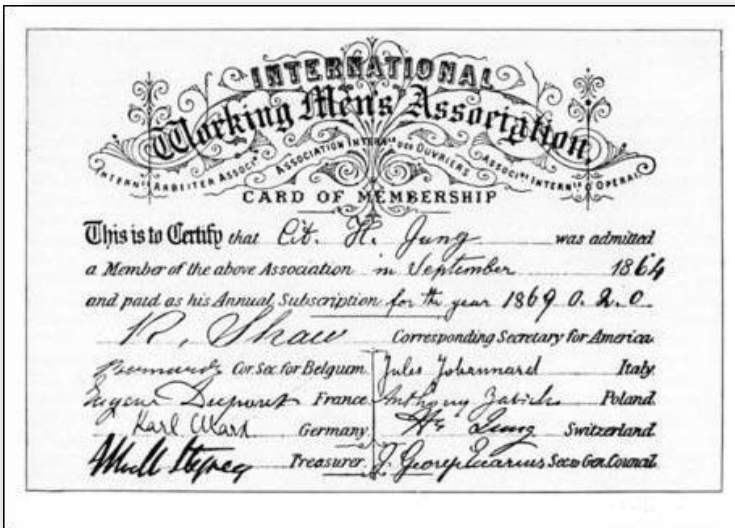 INTERNATIONAL
Working Men's Association
INTERN. ARBEITER ASSOC. ASSOCIATION INTERN. DES OUVRIERS ASSOCI. INTERN. D'OPERAI
CARD OF MEMBERSHIP
This is to Certify that Cit. H. Jung was admitted
a Member of the above Association in September 1864
and paid as his Annual Subscription for the year 1869 0.2.0
R. Shaw Corresponding Secretary for America.
Bernard Cor. Sec. for Belgium. Jules Johannard Italy.
Eugene Dupont France. Anthony Zabicki Poland.
Karl Marx Germany. H. Jung Switzerland.
Stepney Treasurer. J. George Eccarius Sec. to Gen. Council.